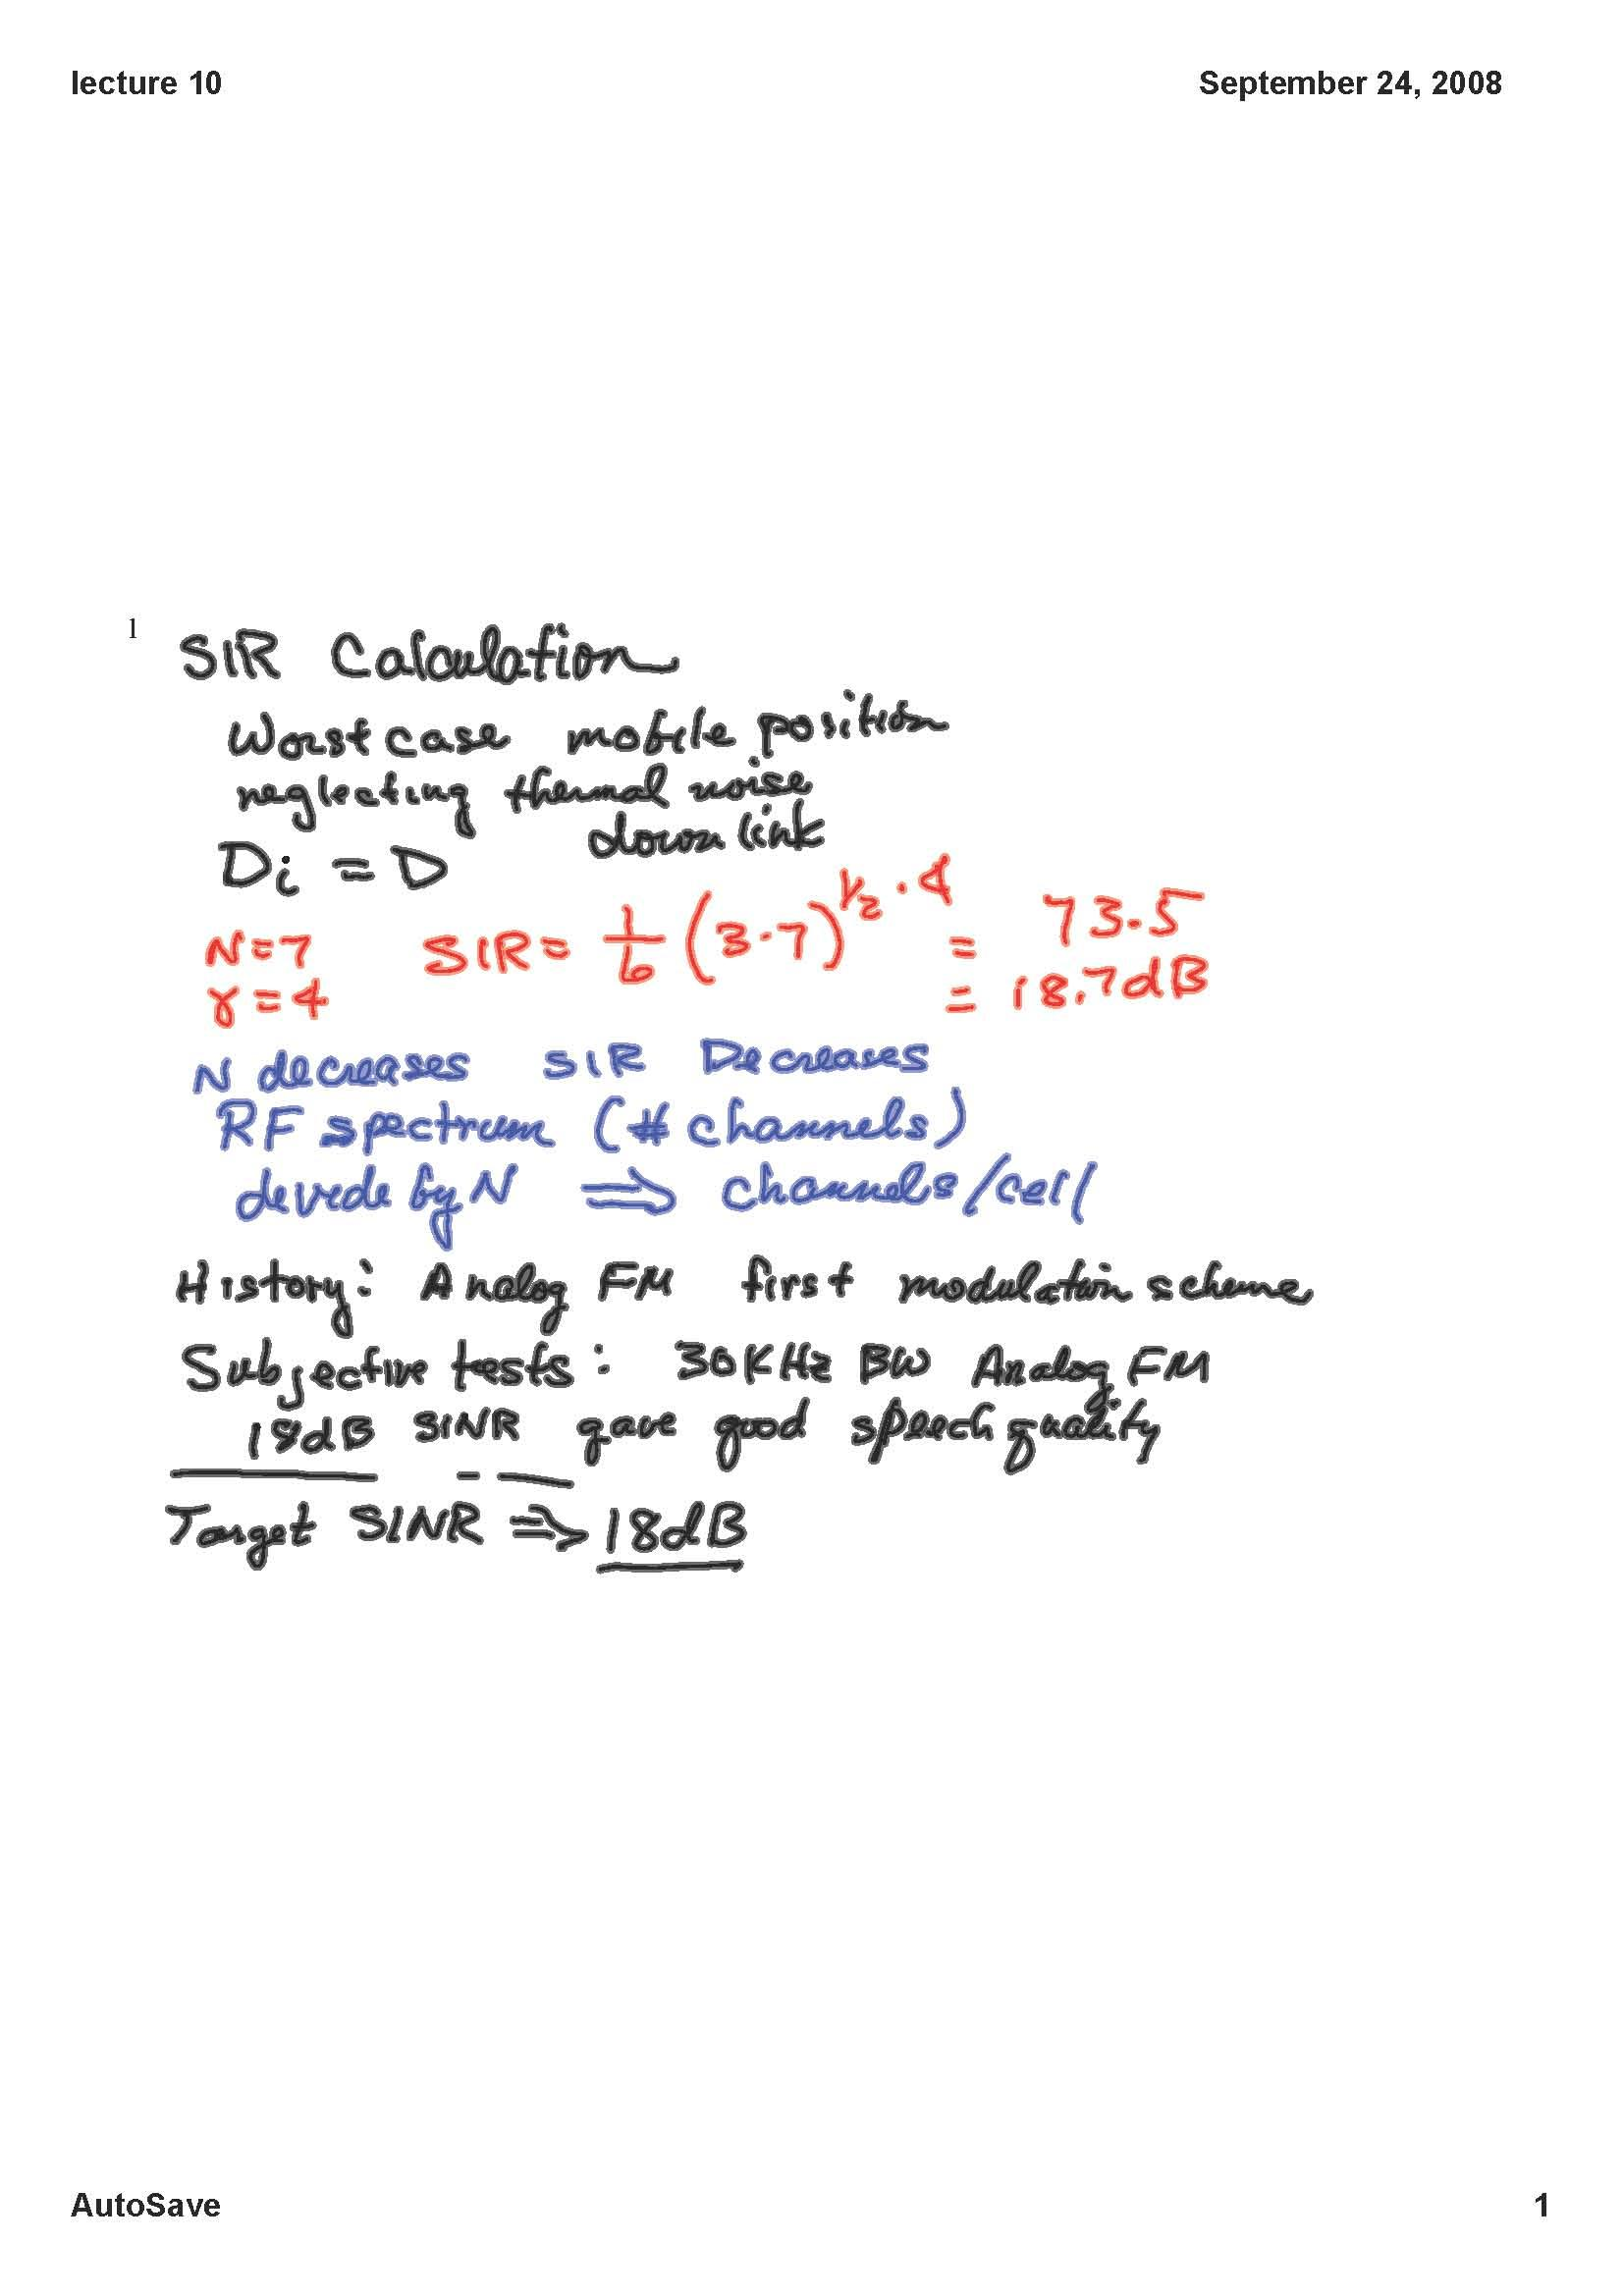 lecture 10
September 24, 2008
1
SIR Calculation
Worst case mobile position
neglecting thermal noise
down link
Di = D
N=7 SIR= 1/6 (3·7)^½·4 = 73.5
γ=4 = 18.7dB
N decreases SIR Decreases
RF spectrum (# channels)
devide by N ⇒ channels/cell
History: Analog FM first modulation scheme
Subjective tests: 30KHz BW Analog FM
18dB SINR gave good speech quality
Target SINR ⇒ 18dB
AutoSave
1